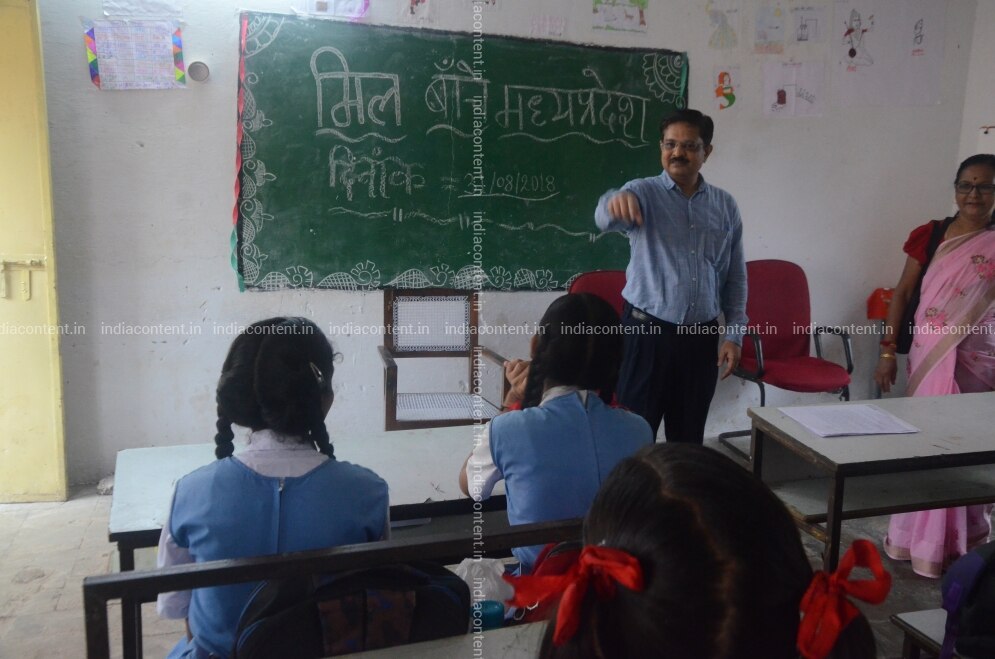 मिल बाँचे मध्यप्रदेश
दिनाँक = /08/2018
indiacontent.in indiacontent.in indiacontent.in indiacontent.in indiacontent.in indiacontent.in indiacontent.in indiacontent.in indiacontent.in
indiacontent.in indiacontent.in indiacontent.in indiacontent.in indiacontent.in indiacontent.in